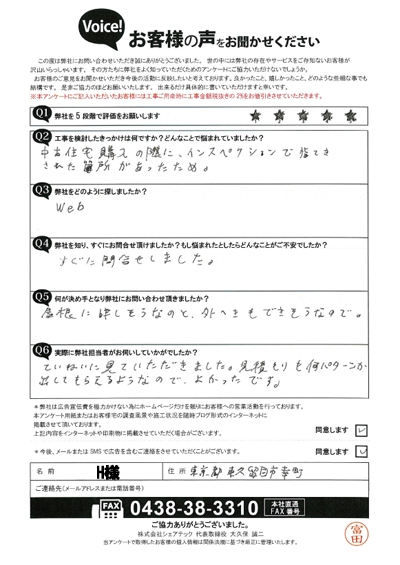 Voice!
お客様の声をお聞かせください
この度は弊社にお問い合わせいただき誠にありがとうございました。世の中には弊社の存在やサービスをご存知ないお客様が
沢山いらっしゃいます。その方たちに弊社をよく知っていただくためのアンケートにご協力いただけないでしょうか。
お客様のご意見をお聞かせいただき今後の活動に反映したいと考えております。良かったこと、嬉しかったこと、どのような些細な事でも
結構です。是非ご協力のほどお願いいたします。出来るだけ具体的に書いていただけますと幸いです。
※本アンケートにご記入いただいたお客様には工事ご用命時に工事金額税抜きの2%をお値引きさせていただきます。
Q1 弊社を5段階で評価をお願いします ★ ★ ★ ★ ★
Q2 工事を検討したきっかけは何ですか?どんなことで悩まれていましたか?
中古住宅購入の際に、インスペクションで指てき
された箇所があったため。
Q3 弊社をどのように探しましたか?
Web
Q4 弊社を知り、すぐにお問合せ頂けましたか?もし悩まれたとしたらどんなことがご不安でしたか?
すぐに問合せしました。
Q5 何が決め手となり弊社にお問い合わせ頂きましたか?
屋根に詳しそうなのと、外へきもできそうなので。
Q6 実際に弊社担当者がお伺いしていかがでしたか?
ていねいに見ていただきました。見積もりも何パターンか
出してもらえるようなので、よかったです。
※弊社は広告宣伝費を極力かけない為にホームページだけを頼りにお客様への営業活動を行っております。
本アンケート用紙またはお客様宅の調査風景や施工状況を随時ブログ形式のインターネットに
掲載させて頂いております。
上記内容をインターネットや印刷物に掲載させていただく場合がございます。 同意します ✓
※今後、メールまたはSMSで広告を含むご連絡をさせていただくことがございます。 同意します ✓
名前 H様 住所 東京都東久留米市幸町
ご連絡先(メールアドレスまたは電話番号)
FAX 0438-38-3310 本社直通FAX番号
ご協力ありがとうございました。
株式会社シェアテック 代表取締役 大久保 誠二
当アンケートで取得したお客様の個人情報は関係法規に基づき厳正に管理いたします。
富田